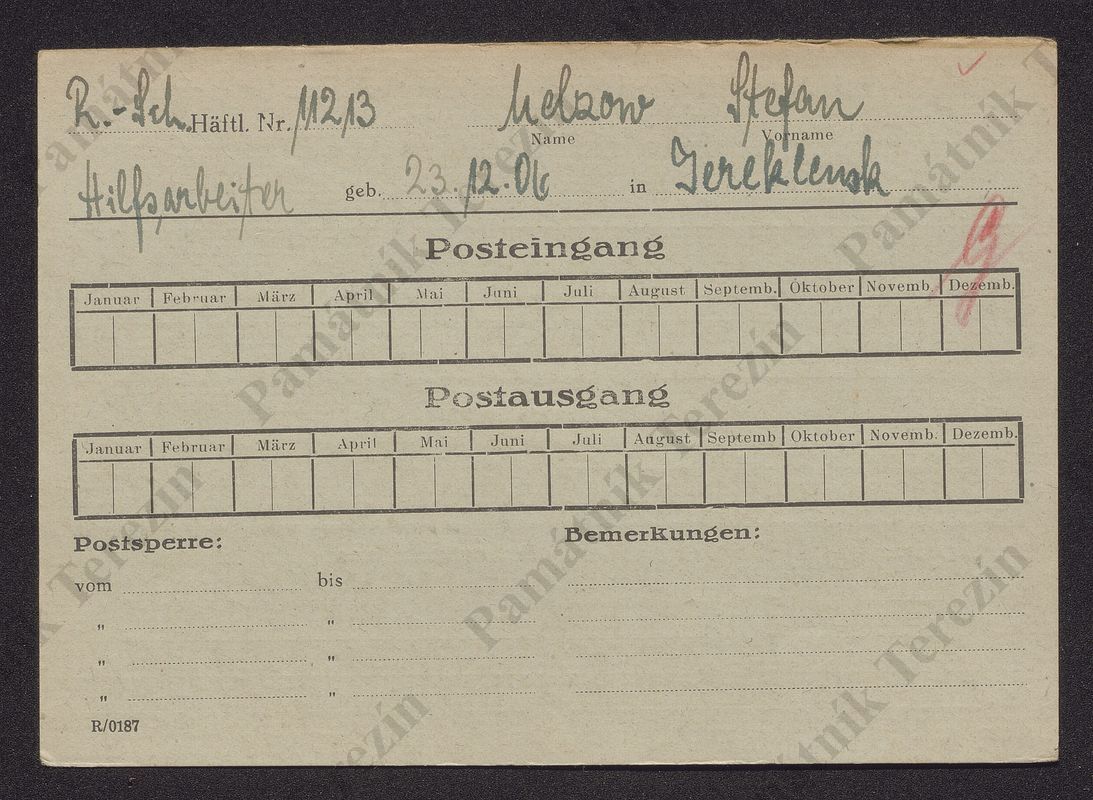 R.-Sch. Häftl. Nr. 11213 Melzow Stefan
Name Vorname
Hilfsarbeiter geb. 23.12.06 in Jereklensk
Posteingang
Januar Februar März April Mai Juni Juli August Septemb. Oktober Novemb. Dezemb.
Postausgang
Januar Februar März April Mai Juni Juli August Septemb Oktober Novemb. Dezemb.
Postsperre: Bemerkungen:
vom bis
„ „
„ „
„ „
R/0187
Památník Terezín